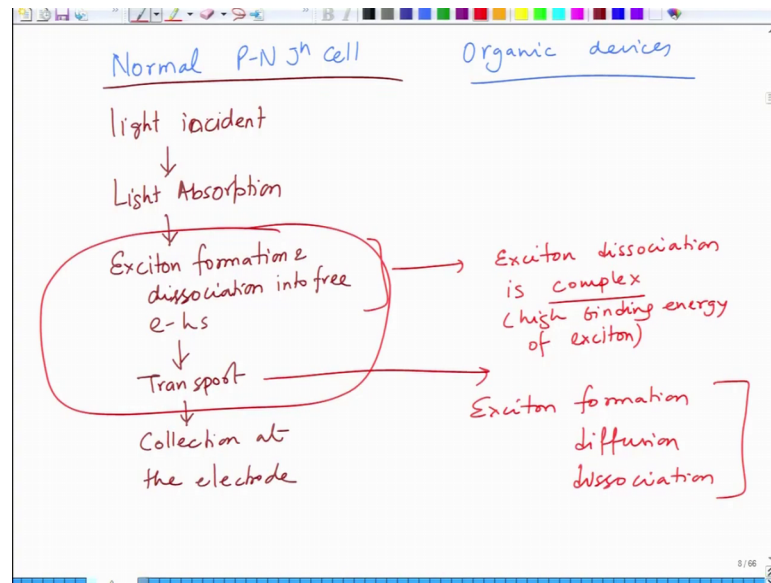 Normal P-N Jn Cell
Organic devices
light incident
↓
Light Absorption
↓
Exciton formation &
dissociation into free
e-hs
↓
Transport
↓
Collection at
the electrode
Exciton dissociation
is complex
(high binding energy
of exciton)
Exciton formation
diffusion
dissociation
8 / 66